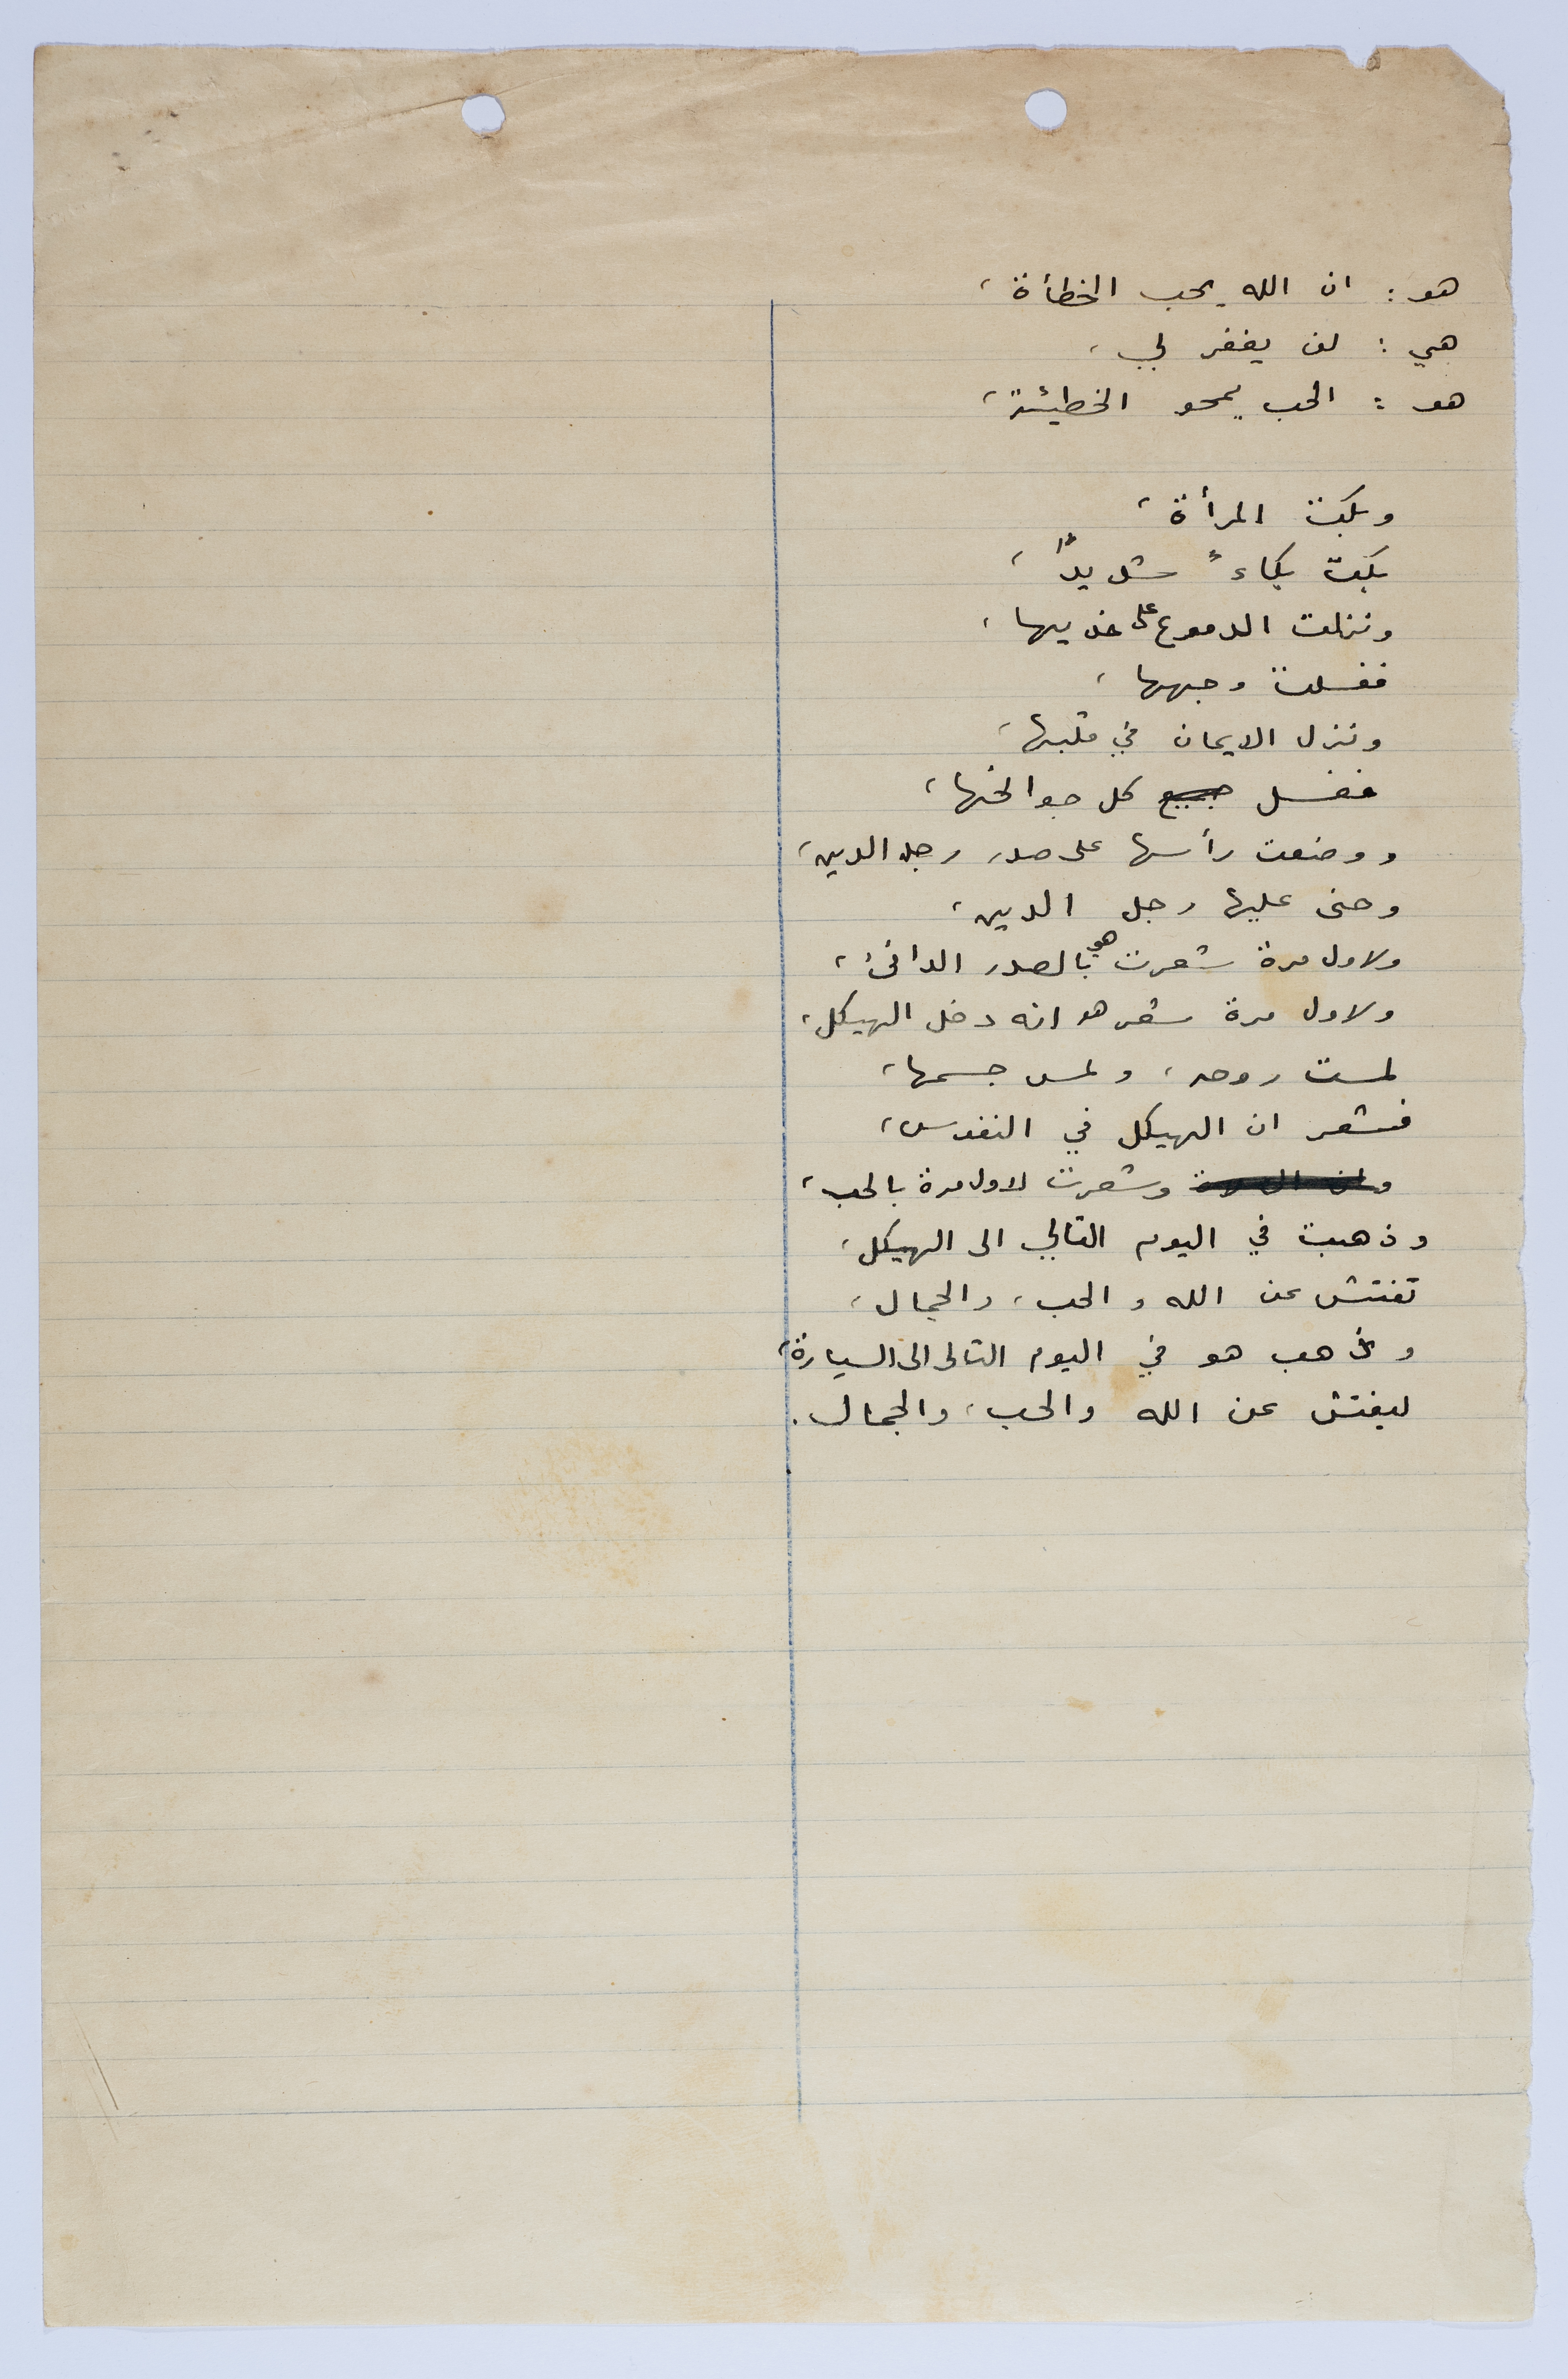 هو : ان الله يحب الخطأة ،
هي : لن يغفر لي ،
هو : الحب يمحو الخطيئة ،
وبكت المرأة ،
بكت بكاءً شديداً ،
ونزلت الدموع على خديها ،
فغسلت وجهها ،
ونزل الايمان في قلبها ،
فغسل جميع كل جوالحها ،
ووضعت رأسها على صدر رجل الدين ،
وحنى عليها رجل الدين ،
ولاول مرة شعرت هي بالصدر الدافئ ،
ولاول مرة شعر هو انه دخل الهيكل ،
لمست روحه ، ولمس جسمها ،
فشعر ان الهيكل في النفوس ،
وشعرت لاول مرة بالحب ،
وذهبت في اليوم التالي الى الهيكل ،
تفتش عن الله والحب ، والجمال ،
وذهب هو في اليوم التالي الى السيارة ،
ليفتش عن الله والحب ، والجمال .